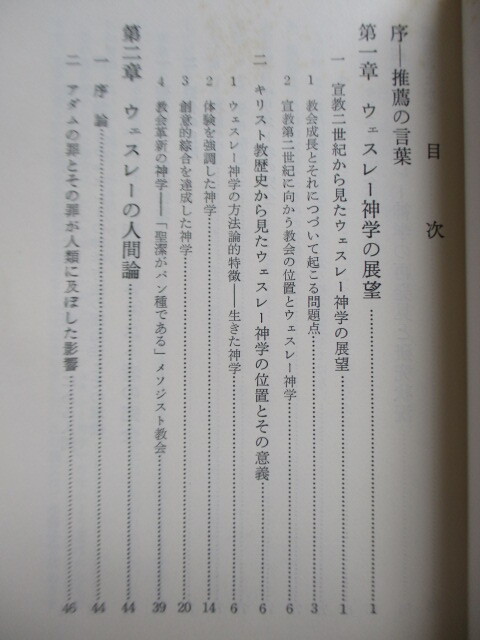 目次
序―推薦の言葉
第一章 ウェスレー神学の展望…………1
一 宣教二世紀から見たウェスレー神学の展望…………1
1 教会成長とそれにつづいて起こる問題点…………3
2 宣教第二世紀に向かう教会の位置とウェスレー神学…………6
二 キリスト教歴史から見たウェスレー神学の位置とその意義…………6
1 ウェスレー神学の方法論的特徴―生きた神学…………6
2 体験を強調した神学…………14
3 創意的綜合を達成した神学…………20
4 教会革新の神学――「聖潔がパン種である」メソジスト教会…………39
第二章 ウェスレーの人間論…………44
一 序論…………44
二 アダムの罪とその罪が人類に及ぼした影響…………46